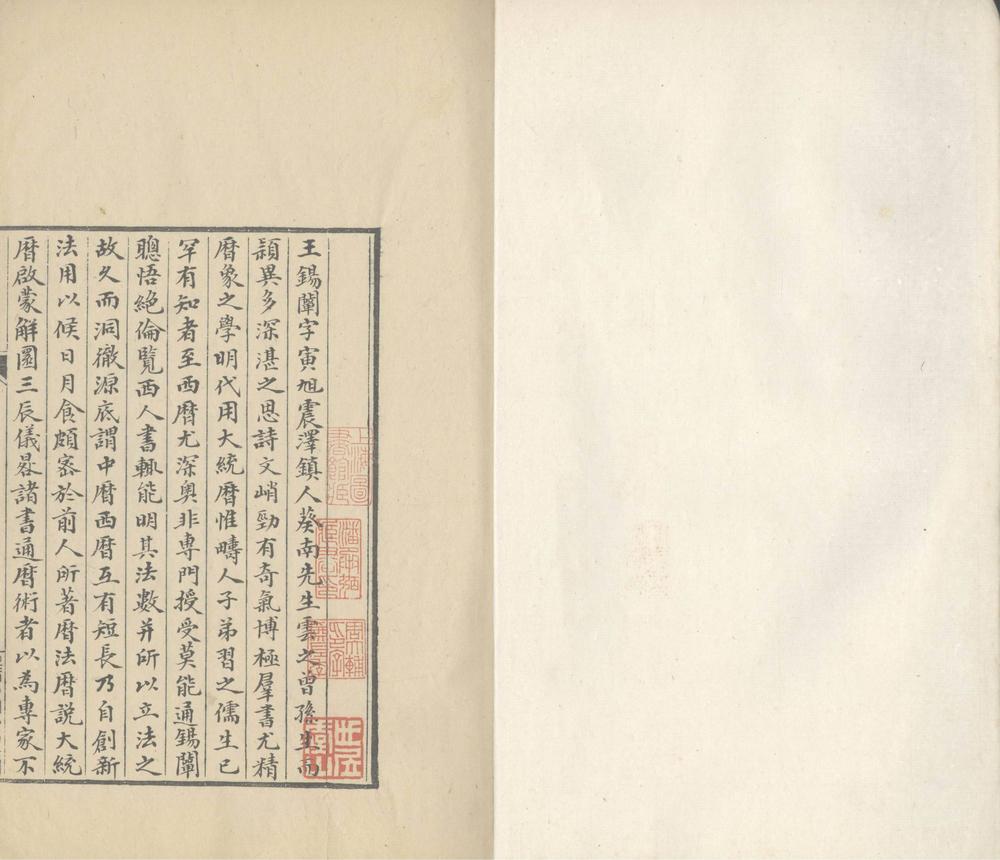 王錫闡字寅旭震澤鎮人葵南先生雲之曾孫生而
頴異多深湛之思詩文峭勁有奇氣博極羣書尤精
曆象之學明代用大統曆惟疇人子弟習之儒生已
罕有知者至西曆尤深奥非專門授受莫能通錫闡
聰悟絶倫覽西人書輙能明其法數并所以立法之
故久而洞徹源底謂中曆西曆互有短長乃自創新
法用以候日月食頗密於前人所著曆法曆説大統
曆啟蒙解圜三辰儀晷諸書通曆術者以為專家不